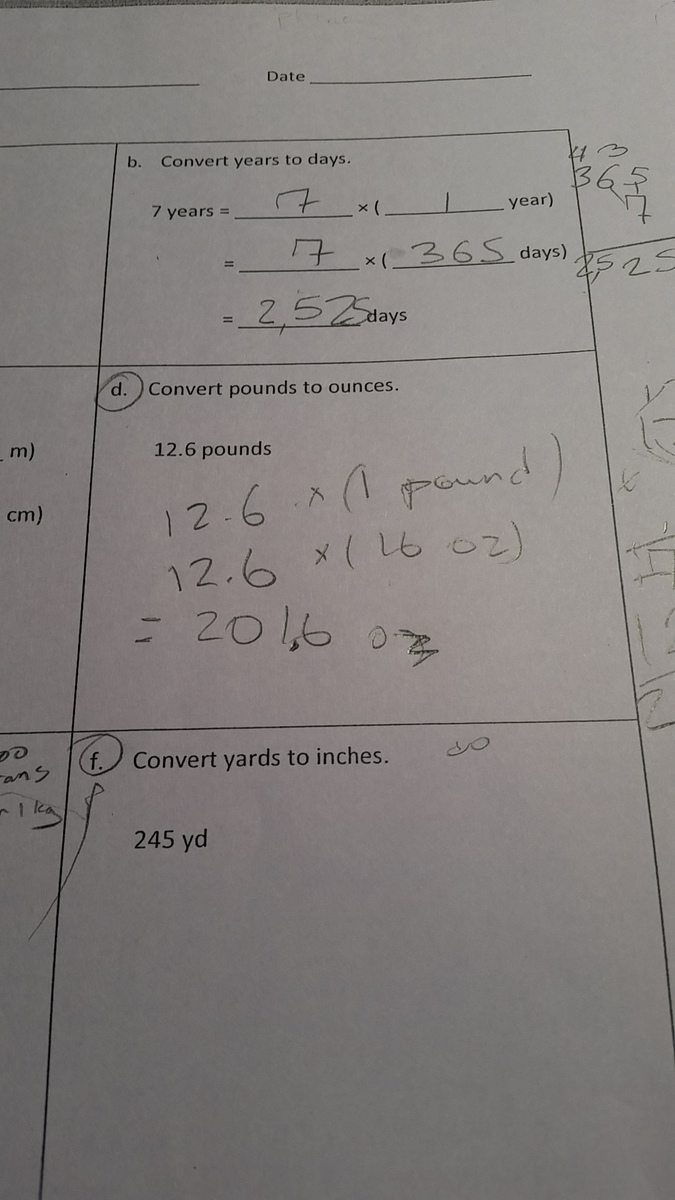 Date
b. Convert years to days.
7 years = 7 x ( 1 year)
= 7 x ( 365 days)
= 2,525 days
4 3
365
7
2,525
d. Convert pounds to ounces.
m)
12.6 pounds
cm)
12.6 x (1 pound)
12.6 x (16 oz)
= 201.6 oz
f. Convert yards to inches.
1 kg
245 yd